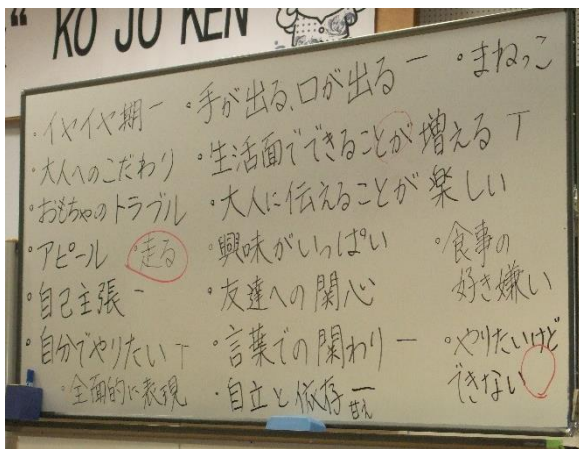 " KO JO KEN
・イヤイヤ期 一
・大人へのこだわり
・おもちゃのトラブル
・アピール ・走る
・自己主張 一
・自分でやりたい T
・全面的に表現
・手が出る、口が出る 一
・生活面でできることが増える T
・大人に伝えることが楽しい
・興味がいっぱい
・友達への関心
・言葉での関わり 一
・自立と依存 一
甘え
・まねっこ
・食事の
好き嫌い
・やりたいけど
できない